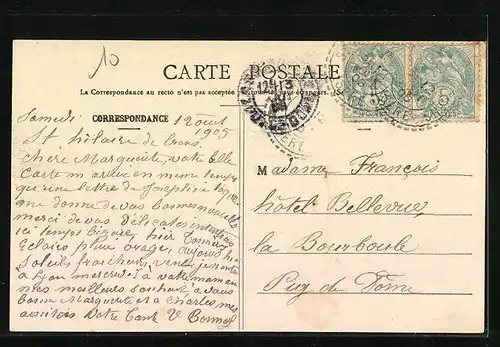 10
CARTE POSTALE
La Correspondance au recto n'est pas acceptée
CORRESPONDANCE
Samedi 12 aout
1905
St hilaire de
Chère Marguerite, votre
Carte m arrive en meme temps
qu une lettre de Joséphine
me donne de vos bonnes nouvelles
merci de vos délicates
ici temps bizarre, hier
Eclairs pluie orage, aujourd hui
Soleil, fraicheur,
à Lyon mercredi à votre maman
mes meilleurs à vous
bonne Marguerite et à Charles, mes
amitiés Votre Tante V Bonnay
Madame François
hôtel Bellevue,
la Bourboule
Puy de Dome